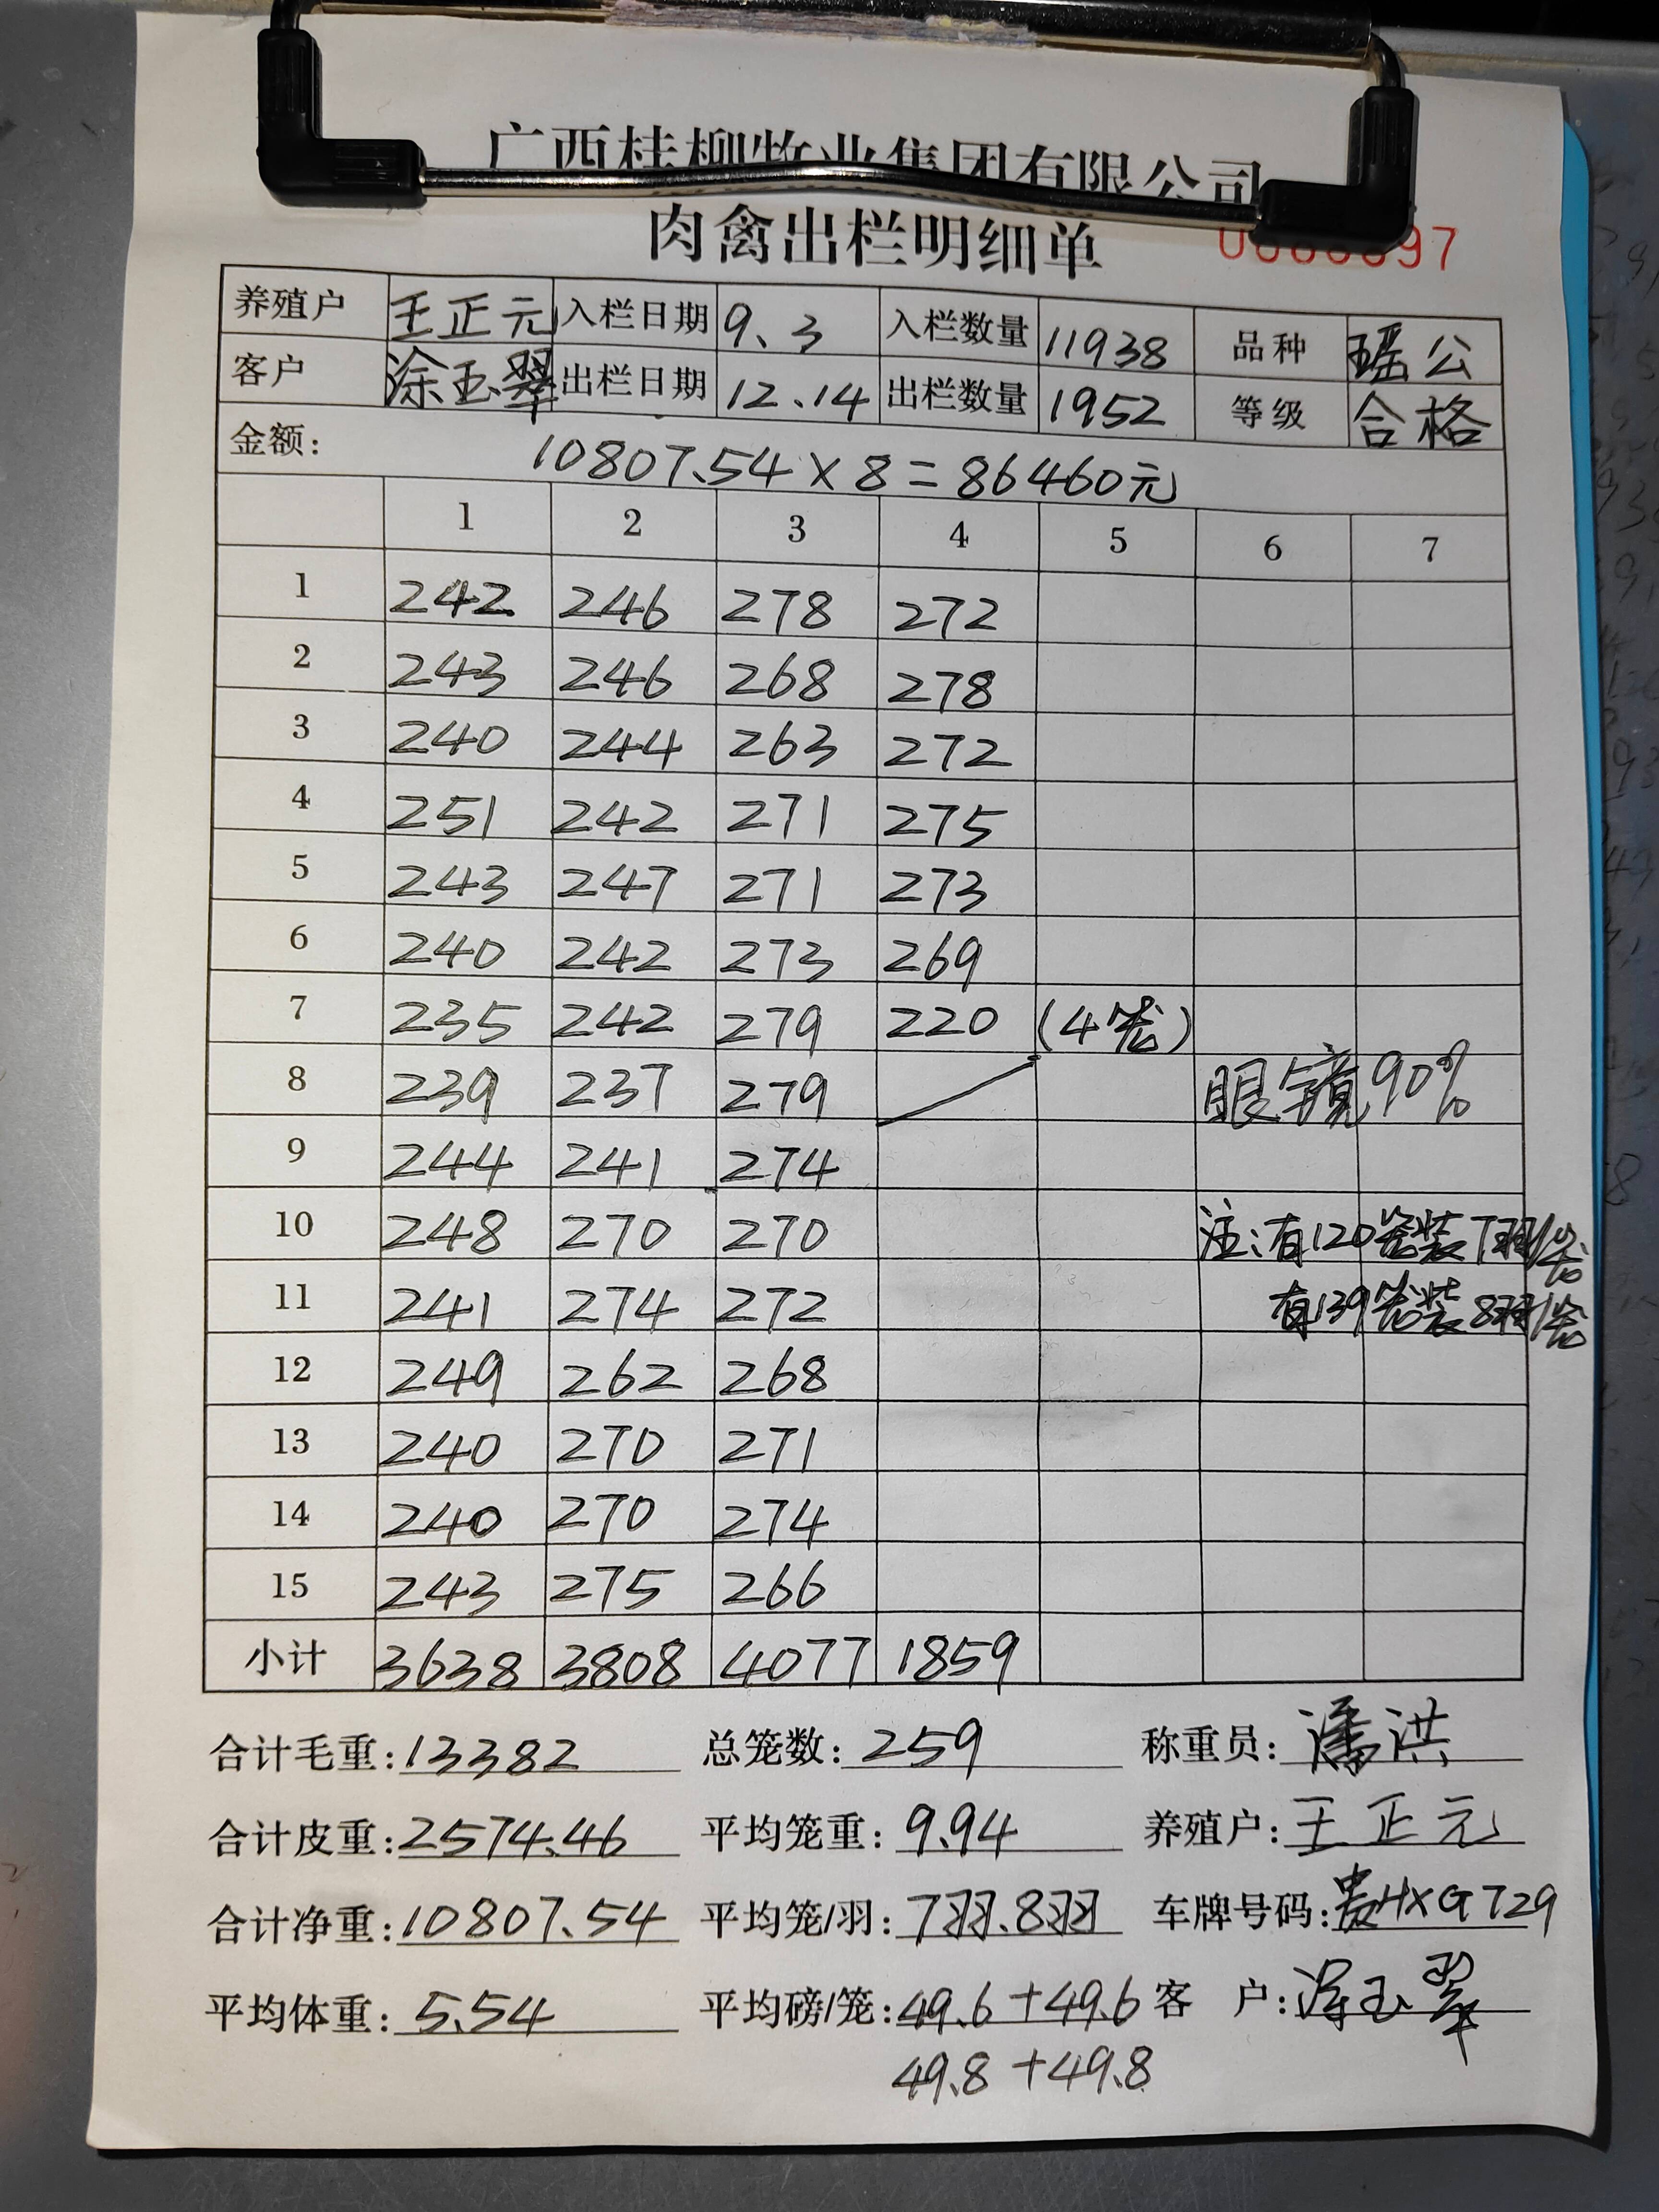 广西桂柳牧业集团有限公司
肉禽出栏明细单
97
养殖户 王正元 入栏日期 9.3 入栏数量 11938 品种 瑶公
客户 涂玉翠 出栏日期 12.14 出栏数量 1952 等级 合格
金额: 10807.54×8=86460元
1 2 3 4 5 6 7
1 242 246 278 272
2 243 246 268 278
3 240 244 263 272
4 251 242 271 275
5 243 247 271 273
6 240 242 273 269
7 235 242 279 220 (4笼)
8 239 237 279 眼镜90%
9 244 241 274
10 248 270 270 注:有120笼装7羽/笼
11 241 274 272 有139笼装8羽/笼
12 249 262 268
13 240 270 271
14 240 270 274
15 243 275 266
小计 3638 3808 4077 1859
合计毛重:13382 总笼数:259 称重员:潘洪
合计皮重:2574.46 平均笼重:9.94 养殖户:王正元
合计净重:10807.54 平均笼/羽:7羽.8羽 车牌号码:贵HXG729
平均体重:5.54 平均磅/笼:49.6+49.6 客 户:涂玉翠
49.8+49.8